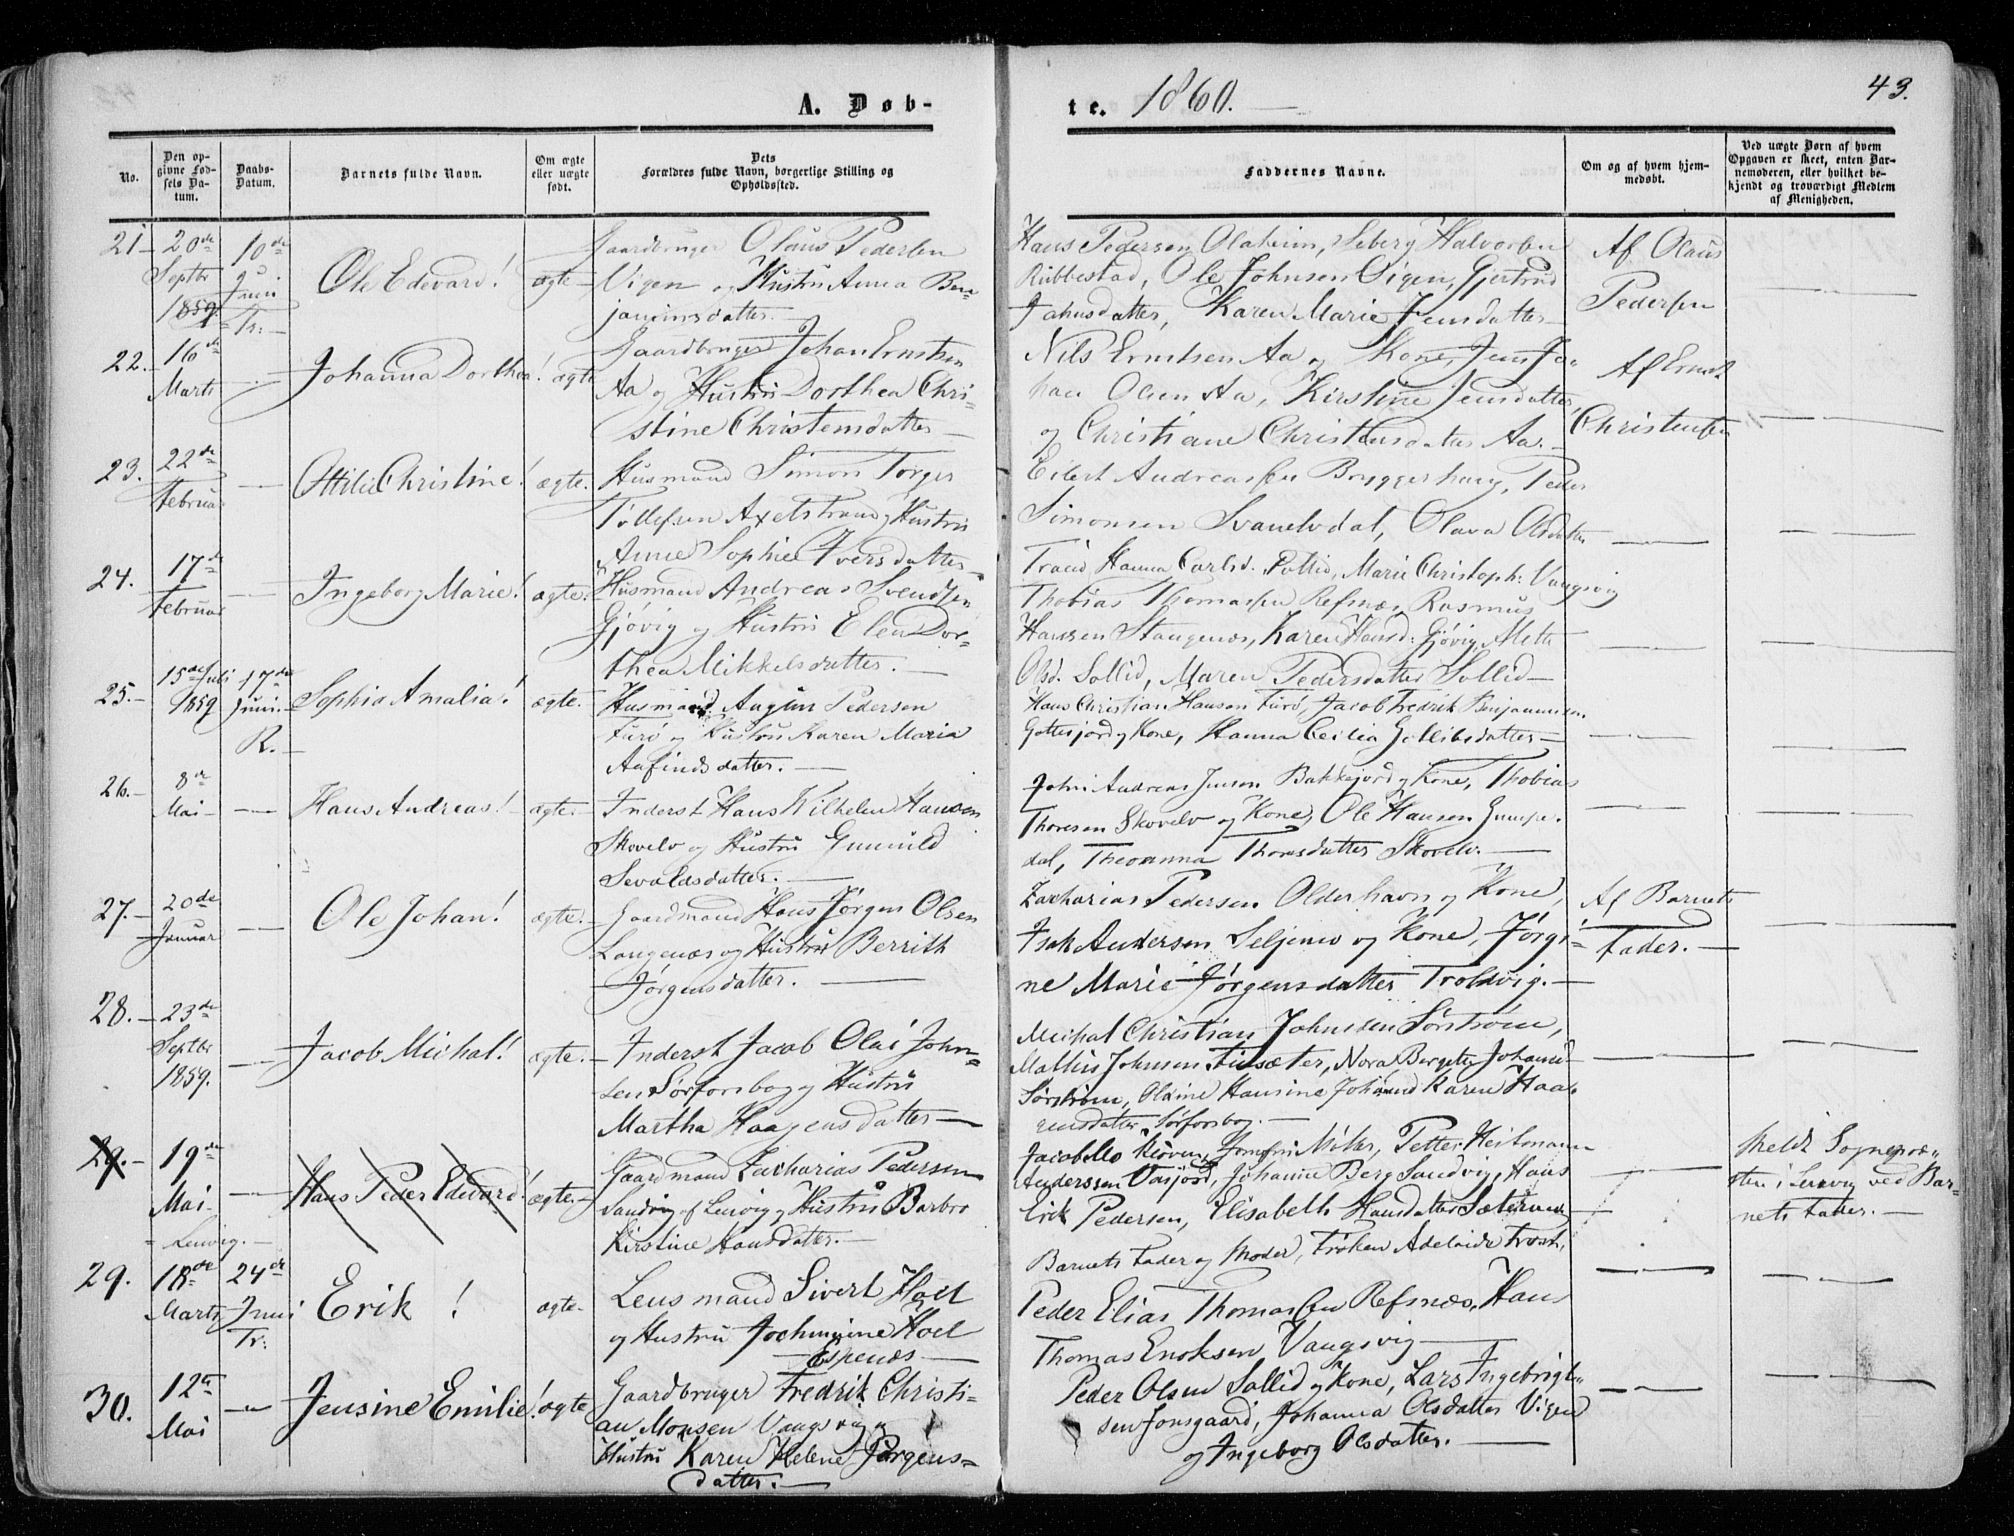 A. Døb-
te. 1860.
43.
No.
Den op-
givne Fød-
sels Da-
tum.
Daabs-
Datum.
Barnets fulde Navn.
Om ægte
eller uægte
født.
Dets
Forældres fulde Navn, borgerlige Stilling og
Opholdssted.
Faddernes Navne.
Om og af hvem hjem-
medøbt.
Ved uægte Børn af hvem
Opgaven er skeet, enten Bar-
nemoderen, eller hvilket be-
kjendt og troværdigt Medlem
af Menigheden.
21 20de
Septbr
1859
10de
Juni
Tr.
Ole Edevard!
ægte
Gaardbruger Olaus Pedersen
Vigen og Hustru Anna Ben-
jaminsdatter.
Hans Pedersen Olaheim, Seberg Halvorsen
Rubbestad, Ole Johnsen Vigen, Gjertrud
Jahnsdatter, Karen Marie Jensdatter
Af Olaus
Pedersen
22. 16de
Marts
Johanna Dorthea!
ægte
Gaardbruger Johan Erntsen
Aa og Hustru Dorthea Chri-
stine Christensdatter
Nils Erntsen Aa og Kone, Jens Jo-
han Olsen Aa, Kirstine Jensdatter,
og Christiane Christensdatter Aa.
Af Ernst
Christensen
23. 22de
Februar
Ottilie Christine!
ægte.
Husmand Simon Torger
Tollefsen Axelstrand og Hustru
Anne Sophie Iversdatter
Eilert Andreassen Bryggerhaug, Peder
Simonsen Svanelvdal, Olava Olsdatter
Hanna Carlsd. Sollid, Marie Christoph: Vangsvig
24. 17de
Februar
Ingeborg Marie!
ægte.
Husmand Andreas Svendsen
Gjøvig og Hustru Elen Dor-
thea Mikkelsdatter.
Thobias Thomassen Refsnæs, Rasmus
Hanssen Stangenæs, Karen Hansd: Gjøvig, Mette
Olsd. Sollid, Maren Pedersdatter Sollid
25. 15de Juli
1859
17de
Juni.
R.
Sophia Amalia!
ægte.
Husmand August Pedersen
Furø og Hustru Karen Maria
Aafindsdatter.
Hans Christian Hanson Furø, Jacob Fredrik Benjaminsen
Gottesjord og Kone, Hanna Cecilia Gollibsdatter
26. 8de
Mai
Hans Andreas!
ægte.
Inderst Hans Wilhelm Hansen
Skovelv og Hustru Gunnild
Sevaldsdatter.
John Andreas Jenson Bakkejord og Kone, Thobias
Thoresen Skovelv og Kone, Ole Hansen Gumpe-
dal, Theoanna Thoresdatter Skovelv.
27. 20de
Januar
Ole Johan!
ægte.
Gaardmand Hans Jørgen Olsen
Langenæs og Hustru Berrith
Jørgensdatter.
Zacharias Pedersen Olderhavn og Kone,
Isak Andersen Seljenes og Kone, Jørgi-
ne Marie Jørgensdatter Troldvig.
Af Barnets
Fader.
28. 23de
Septbr
1859.
Jacob Michal!
ægte.
Inderst Jacob Olai John-
sen Sørforsbog og Hustru
Martha Haagensdatter
Michal Christian Johnsen Sørstrøm,
Mathis Johnsen Finsæter, Nora Bergete Johansd
Sørstrøm, Oldine Hansine Johansd Karen Haa-
gensdatter Sørforsbog.
29. 19de
Mai
Lenvig.
Hans Peder Edevard!
ægte.
Gaardmand Zacharias Pedersen
Sandvig af Lenvig og Hustru Barbro
Kirstine Hansdatter.
Petter Heitmann
Anderssen Vasjord, Johanne Berg Sandvig, Hans
Erik Pedersen, Elisabeth Hansdatter Sæternes
Meldt Sognepræ-
sten i Lenvig ved Bar-
nets Fader.
29. 18de
Marts
24de
Juni
Tr.
Erik!
ægte
Lensmand Sivert Hoel
og Hustru Jochumine Hoel
Espenæs
Barnets Fader og Moder, Frøken Adelaide Frost,
Peder Elias Thomassen Refsnæs, Hans
Thomas Enoksen Vangsvig
30. 12te
Mai
Jensine Emilie!
ægte
Gaardbruger Fredrik Christi-
an Monsen Vangsvig og
Hustru Karen Helene Jørgens-
datter.
Peder Olsen Sollid og Kone, Lars Ingebrigt-
sen Jonsgaard, Johanna Olsdatter Vigen
og Ingeborg Olsdatter.